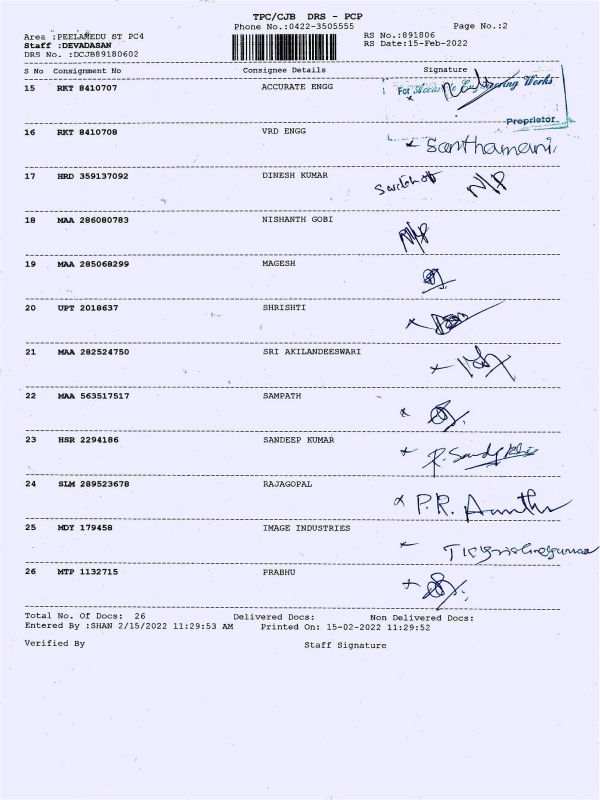 TPC/CJB DRS - PCP
Phone No.:0422-3505555 Page No.:2
Area :PEELAMEDU ST PC4 RS No.:891806
Staff :DEVADASAN RS Date:15-Feb-2022
DRS No. :DCJB89180602
S No Consignment No Consignee Details Signature
15 RKT 8410707 ACCURATE ENGG For Accurate Engineering Works
Proprietor
16 RKT 8410708 VRD ENGG Santhamani
17 HRD 359137092 DINESH KUMAR N/P
18 MAA 286080783 NISHANTH GOBI
19 MAA 285068299 MAGESH
20 UPT 2018637 SHRISHTI
21 MAA 282524750 SRI AKILANDEESWARI
22 MAA 563517517 SAMPATH
23 HSR 2294186 SANDEEP KUMAR
24 SLM 289523678 RAJAGOPAL P.R.
25 MDY 179458 IMAGE INDUSTRIES
26 MTP 1132715 PRABHU
Total No. Of Docs: 26 Delivered Docs: Non Delivered Docs:
Entered By :SHAN 2/15/2022 11:29:53 AM Printed On: 15-02-2022 11:29:52
Verified By Staff Signature